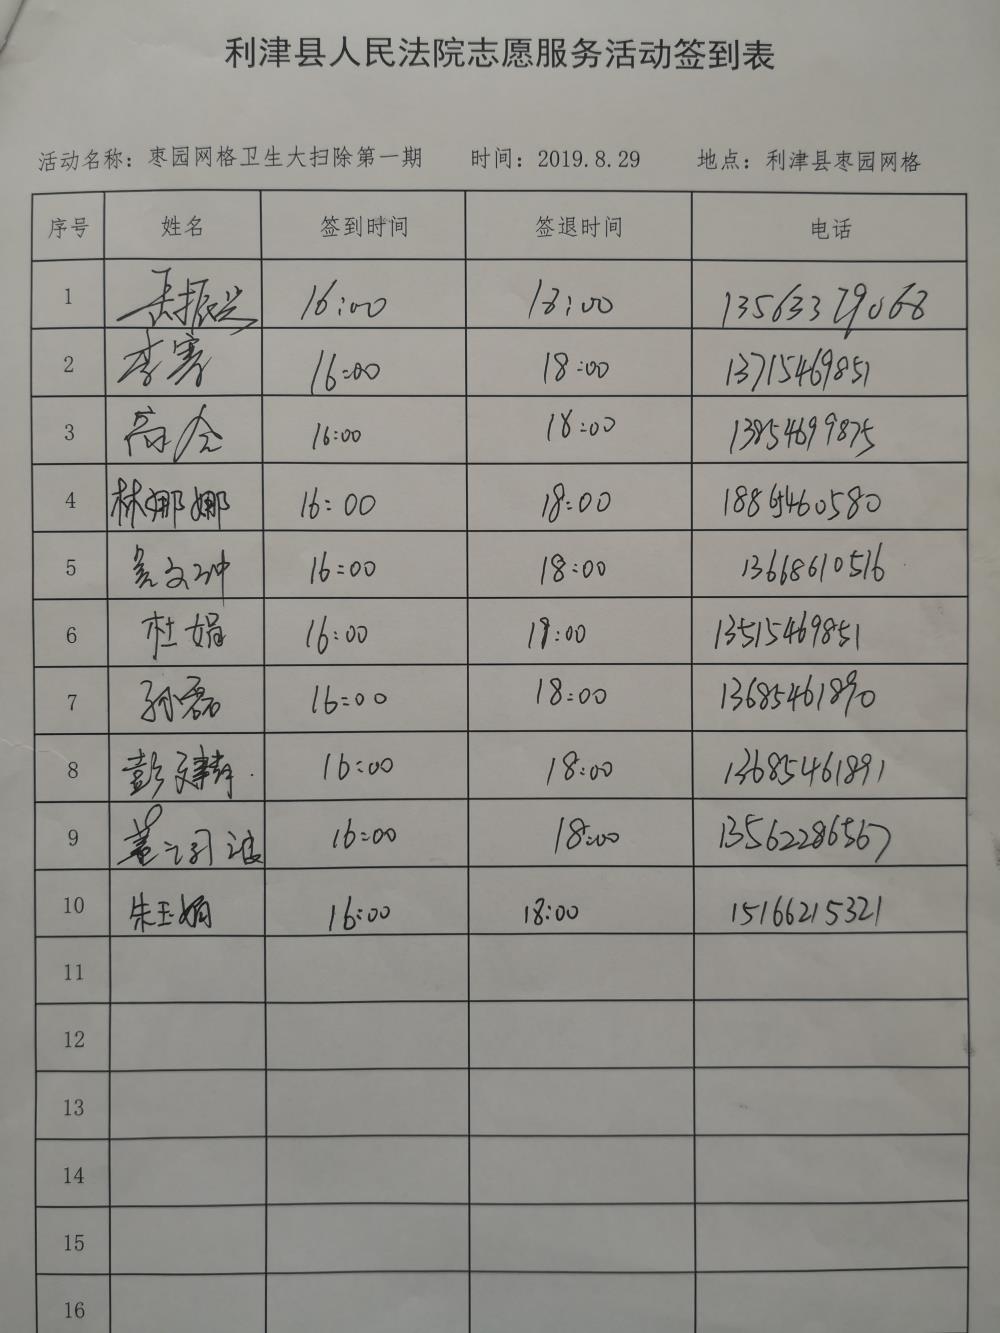 利津县人民法院志愿服务活动签到表
活动名称：枣园网格卫生大扫除第一期 时间：2019.8.29 地点：利津县枣园网格
序号 姓名 签到时间 签退时间 电话
1 16:00 18:00 13563379068
2 李寒 16:00 18:00 13715469851
3 16:00 18:00 13854699875
4 林娜娜 16:00 18:00
5 16:00 18:00 13668610516
6 杜娟 16:00 18:00 13515469851
7 孙磊 16:00 18:00 13685461890
8 16:00 18:00 13685461891
9 16:00 18:00 13562286567
10 朱玉娟 16:00 18:00 15166215321
11
12
13
14
15
16